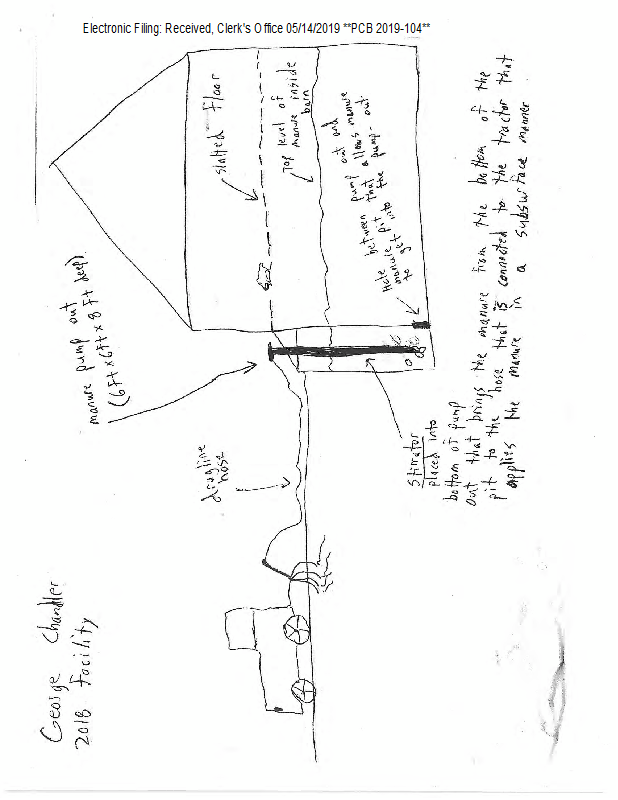 Electronic Filing: Received, Clerk's Office 05/14/2019 **PCB 2019-104**
George Chandler
2018 Facility
dragline
hose
manure pump out
(6Ft x 6Ft x 8 Ft deep)
slatted Floor
Top level of
manure inside
barn
Hole between pump out and
manure pit that allows manure
to get into the pump-out.
Stirrator
placed into
bottom of pump
out that brings the manure from the bottom of the
pit to the hose that is connected to the tractor that
applies the manure in a subsurface manner